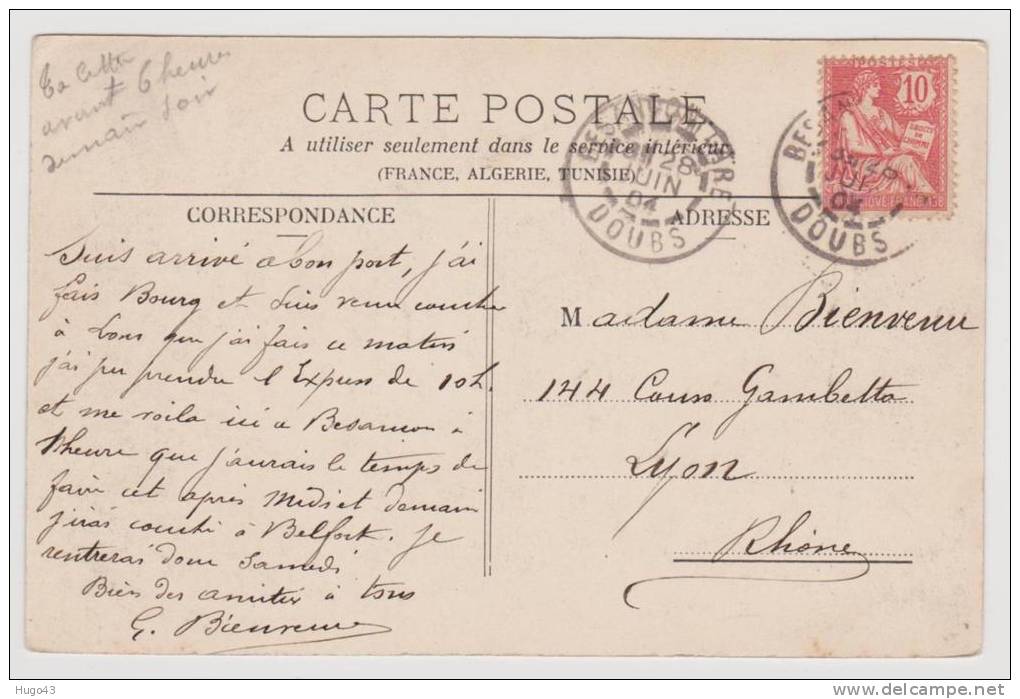 avant 6 heures
demain soir
CARTE POSTALE
A utiliser seulement dans le service intérieur
(FRANCE, ALGERIE, TUNISIE)
CORRESPONDANCE
ADRESSE
POSTES
10
DROITS DE L'HOMME
DOUBS
28
JUIN
04
DOUBS
Suis arrivé a bon port, j'ai
fais Bourg et suis venu couché
à Lons que j'ai fais ce matin
j'ai pu prendre l'Express de 10h.
et me voila ici a Besancon à
1 heure que j'aurais le temps de
faire cet après midi et demain
j'irai couché à Belfort. Je
rentrerai donc Samedi
Bien des amitiés à tous
G. Bienvenu
Madame Bienvenu
144 Cours Gambetta
Lyon
Rhône
Hugo43
www.delcampe.net